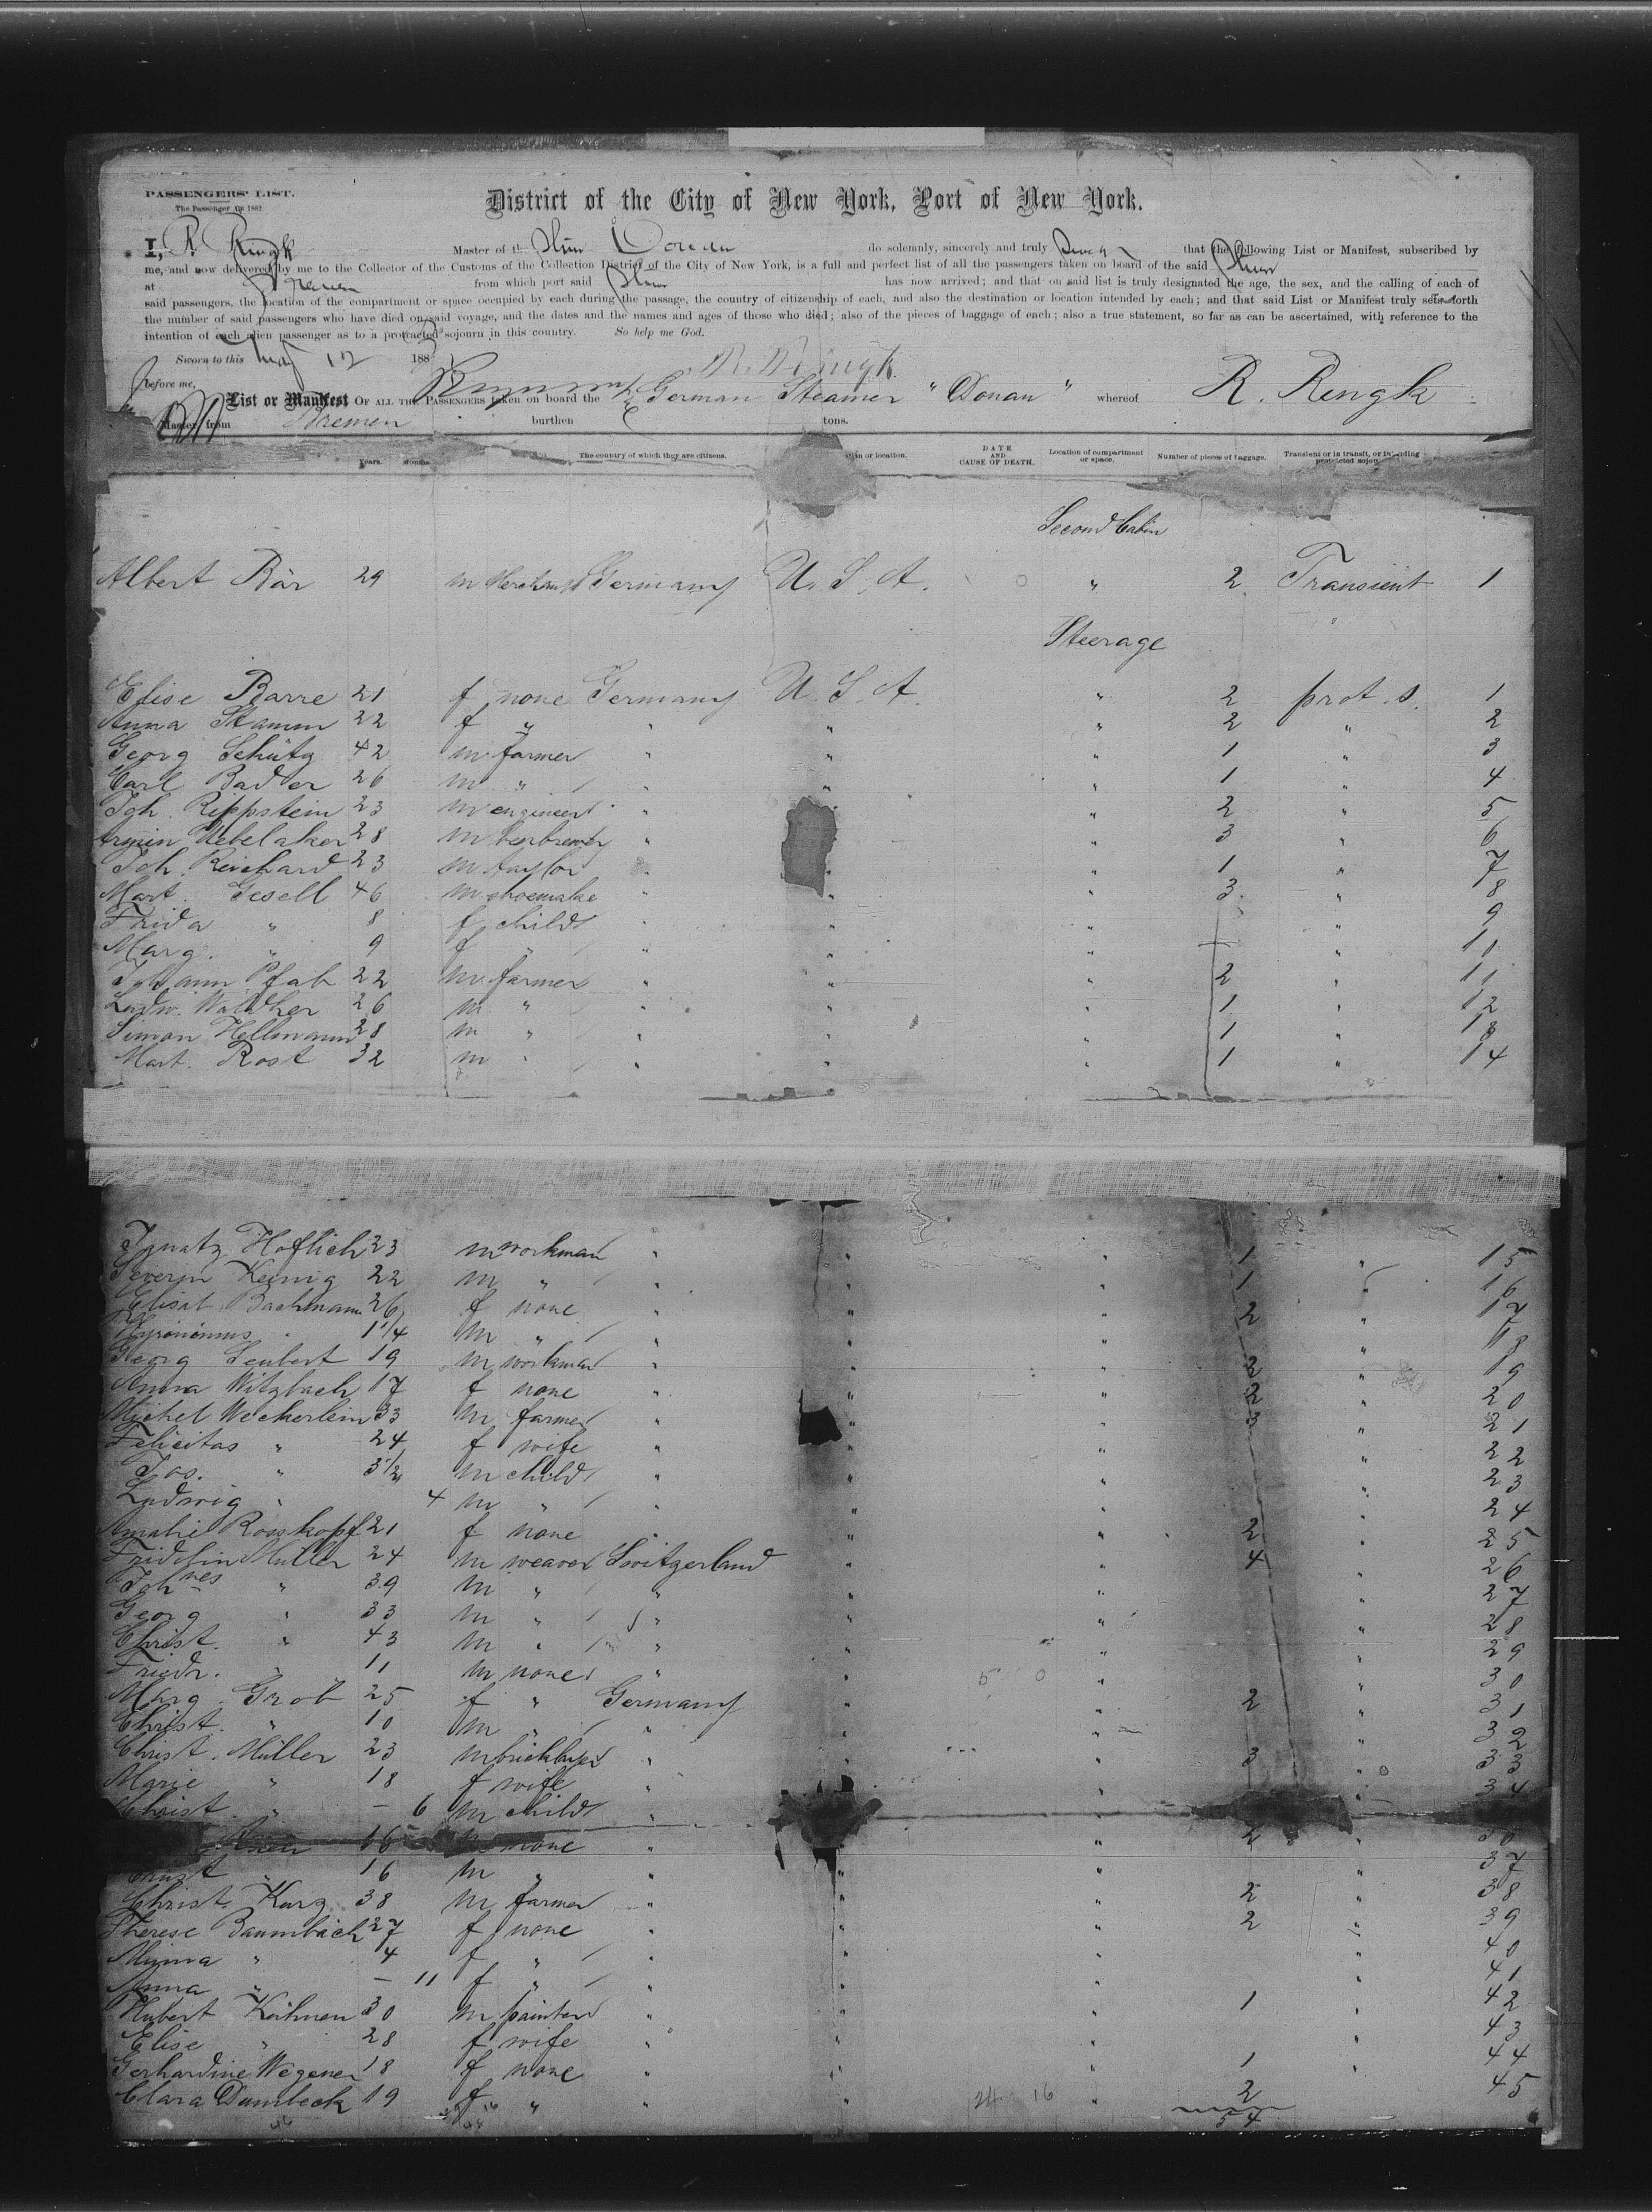 PASSENGERS' LIST.
The Passenger Act 1882.
District of the City of New York, Port of New York.
I, R. Ringk Master of the Str Donau do solemnly, sincerely and truly swear that the following List or Manifest, subscribed by
me, and now delivered by me to the Collector of the Customs of the Collection District of the City of New York, is a full and perfect list of all the passengers taken on board of the said
at Bremen from which port said has now arrived; and that on said list is truly designated the age, the sex, and the calling of each of
said passengers, the location of the compartment or space occupied by each during the passage, the country of citizenship of each, and also the destination or location intended by each; and that said List or Manifest truly sets forth
the number of said passengers who have died on said voyage, and the dates and the names and ages of those who died; also of the pieces of baggage of each; also a true statement, so far as can be ascertained, with reference to the
intention of each alien passenger as to a protracted sojourn in this country. So help me God.
Sworn to this May 12 1883 R. Ringk
before me,
List or Manifest OF ALL THE PASSENGERS taken on board the German Steamer "Donau" whereof R. Ringk
Master, from Bremen burthen tons.
Years. Months. The country of which they are citizens. or location. DATE AND CAUSE OF DEATH. Location of compartment or space. Number of pieces of baggage. Transient or in transit, or intending protracted sojourn
Second Cabin
Albert Bär 29 m Merchant Germany U. S. A. " 2 Transient 1
Steerage
Elise Barre 21 f none Germany U. S. A. " 2 prot. s. 1
Anna Stamm 22 f " " " " 2 " 2
Georg Schütz 42 m farmer " " " 1 " 3
Carl Bader 26 m " " " 1 " 4
Joh. Rippstein 23 m engineer " " 2 " 5
Uebelaker 28 m " " 3 " 6
Joh. Reichard 23 m taylor " " 1 " 7
Mart. Gesell 46 m shoemake " " " 3 " 8
Frida " 8 f child " " " " 9
Marg. " 9 f " " " " " 10
Johann Pfab 22 m farmer " " " 2 " 11
Ludw. Walther 26 m " " " " 1 " 12
Simon Hellmann 28 m " " " " 1 " 13
Mart. Rost 32 m " " " " 1 " 14
Ignatz Höflich 23 m workman " 1 " 15
Severin Kenig 22 m " " 1 " 16
Elisab. Bachmann 26 f none " 2 " 17
Hyronimus " 1 1/4 m " " " 18
Georg Seubert 19 m workman " " " 2 " 19
Anna Witzbach 17 f none " " " 2 " 20
Michel Weckerlein 33 m farmer " " " 3 " 21
Felicitas " 24 f wife " " " " 22
Jos. " 3 1/2 m child " " " " 23
Ludwig " 4 m " " " " " 24
Amalie Rosskopf 21 f none " " " 2 " 25
Fridolin Müller 24 m weaver Switzerland " " 4 " 26
Johnes " 39 m " " " " " 27
Georg " 33 m " " " " " 28
Christ. " 43 m " " " " " 29
Friedr. " 11 m none " " " " 30
Marg. Grob 25 f " Germany " " 2 " 31
Christ. " 10 m " " " " " 32
Christ. Müller 23 m bricklayer " " " 3 " 33
Marie " 18 f wife " " " 34
Christ. " – 6 m child " "
16 none " " 2 " 36
Ernst " 16 m " " " " " 37
Christ. Kurz 38 m farmer " " " 2 " 38
Therese Baumbach 27 f none " " " 2 " 39
Minna " 4 f " " " " " 40
Anna " – 11 f " " " " " 41
Hubert 30 m painter " " " 1 " 42
Elise " 28 f wife " " " " 43
Gerhardine Wegener 18 f none " " " 1 " 44
Clara Dambeck 19 f " " " " 2 45
24 16
54